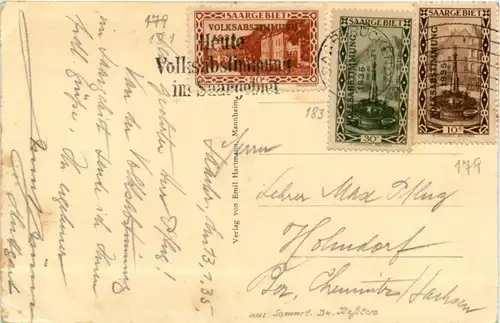 179
181
SAARGEBIET
VOLKSABSTIMMUNG
Heute
Volksabstimmung
im Saargebiet
SAARGEBIET
VOLKSABSTIMMUNG
1935
30
SAARGEBIET
VOLKSABSTIMMUNG
1935
10
183
179
Saarbr, den 13.1.35.
Geehrter Herr Pflug!
Von der Volksabstimmung
im Saargebiet sende ich Ihnen
herzl. Grüße. Ihr ergebener
Verlag von Emil Hartmann, Mannheim
Herrn
Lehrer Max Pflug
Holmdorf
Bez. Chemnitz/Sachsen
aus Samml.